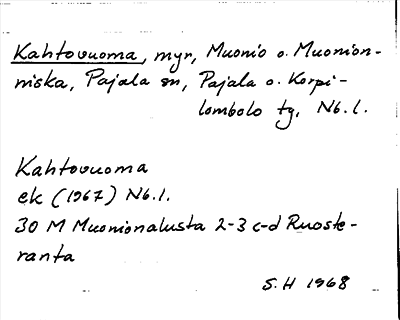 Kahtovuoma, myr, Muonio o. Muonion-
niska, Pajala sn, Pajala o. Korpi-
lombolo tg, Nb. l.
Kahtovuoma
ek (1967) Nb.l.
30 M Muonionalusta 2-3 c-d Ruoste-
ranta
S.H 1968